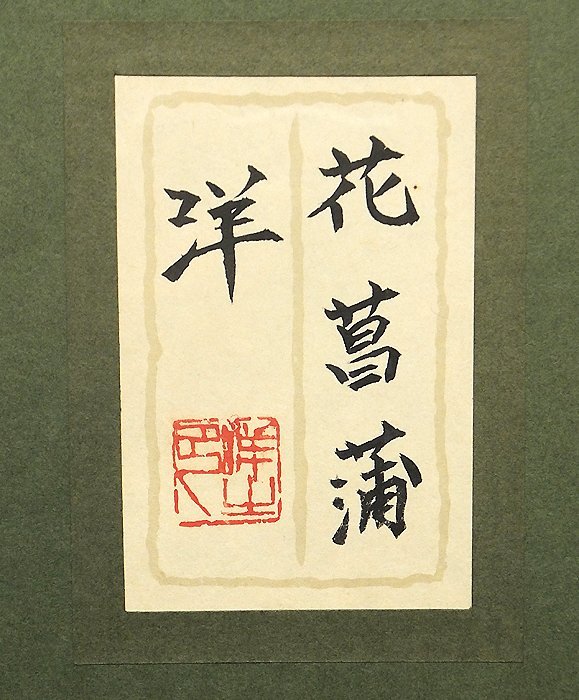 花菖蒲
洋